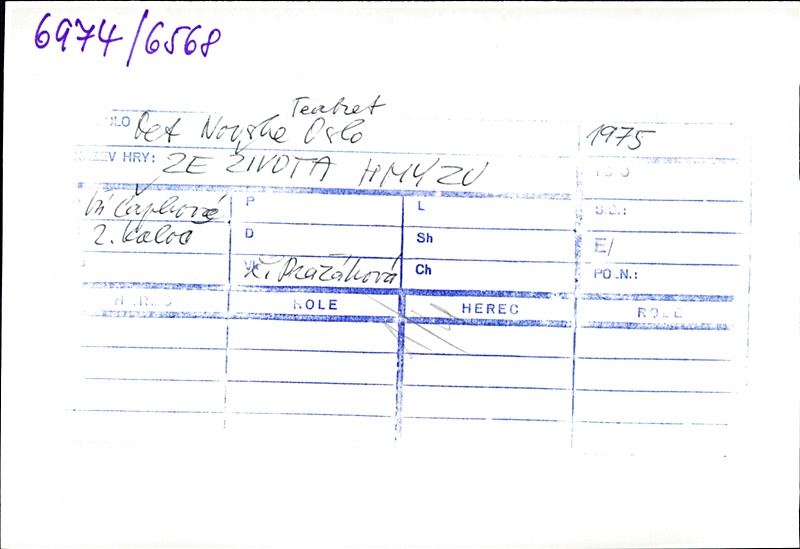 6974/6568
Teatret
DLO Det Norske Oslo 1975
ZEV HRY: ZE ŽIVOTA HMYZU
bří Čapkové P L S.C.:
Z. Kaloč D Sh E/
Pražáková Ch PO.N.:
KOLE HEREC ROLE